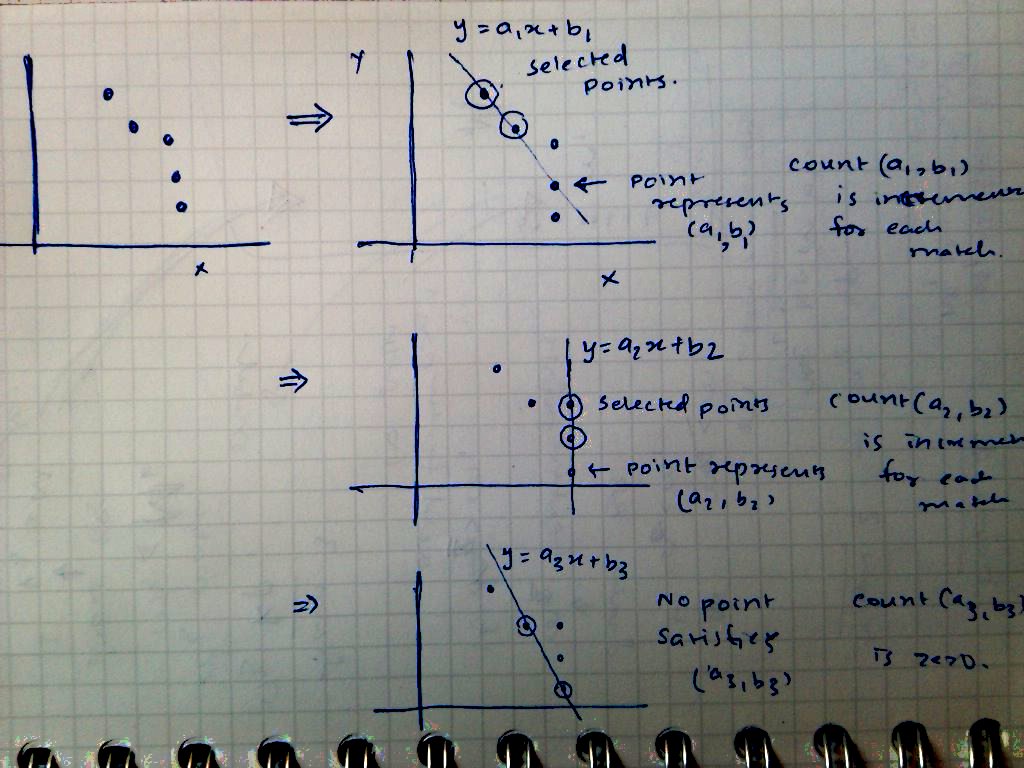 y = a₁x + b₁
Y
selected
points.
point
represents
(a₁, b₁)
count (a₁, b₁)
is
for each
match.
x
x
y = a₂x + b₂
selected points
← point represents
(a₂, b₂)
count (a₂, b₂)
is
for each
match
y = a₃x + b₃
No point
satisfies
(a₃, b₃)
count (a₃, b₃)
is zero.